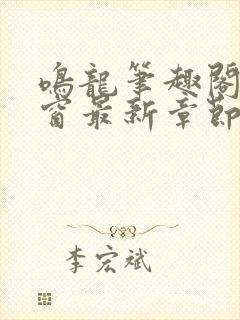 鳴龍筆趣閣
窗最新章節
李宏斌